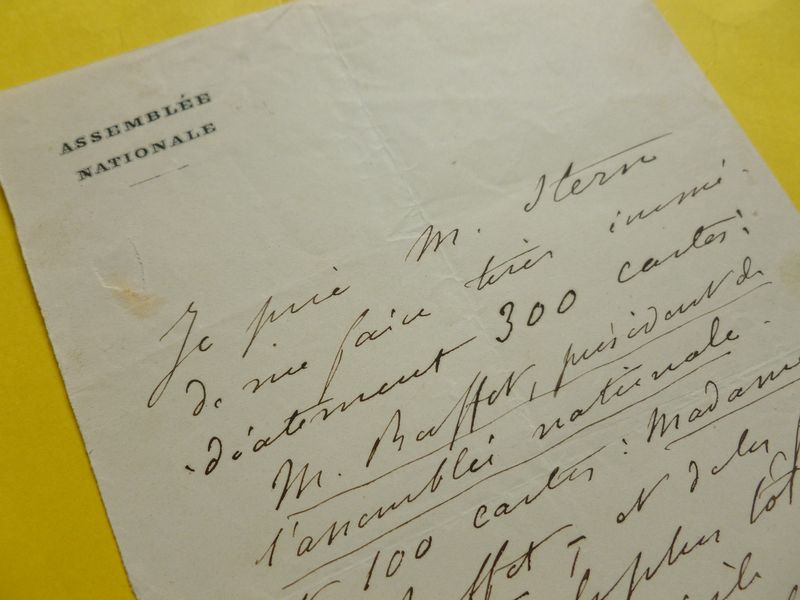 ASSEMBLÉE
NATIONALE
Je prie M. Stern
de me faire tirer immé-
-diatement 300 cartes:
M. Buffet, président de
l'assemblée nationale.
et 100 cartes: Madame
Buffet - et de les
le plus tôt